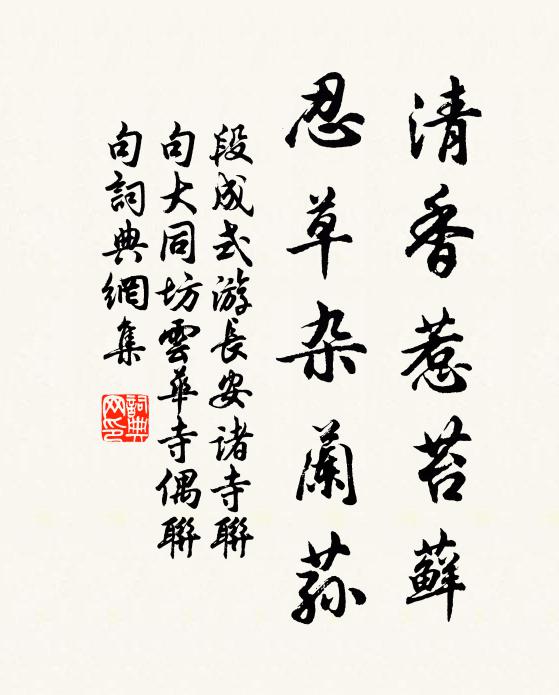 清香惹苔蘚
忍草杂蘭蓀
段成式游長安諸寺聯
句大同坊雲華寺偶聯
句詞典網集
詞典网印